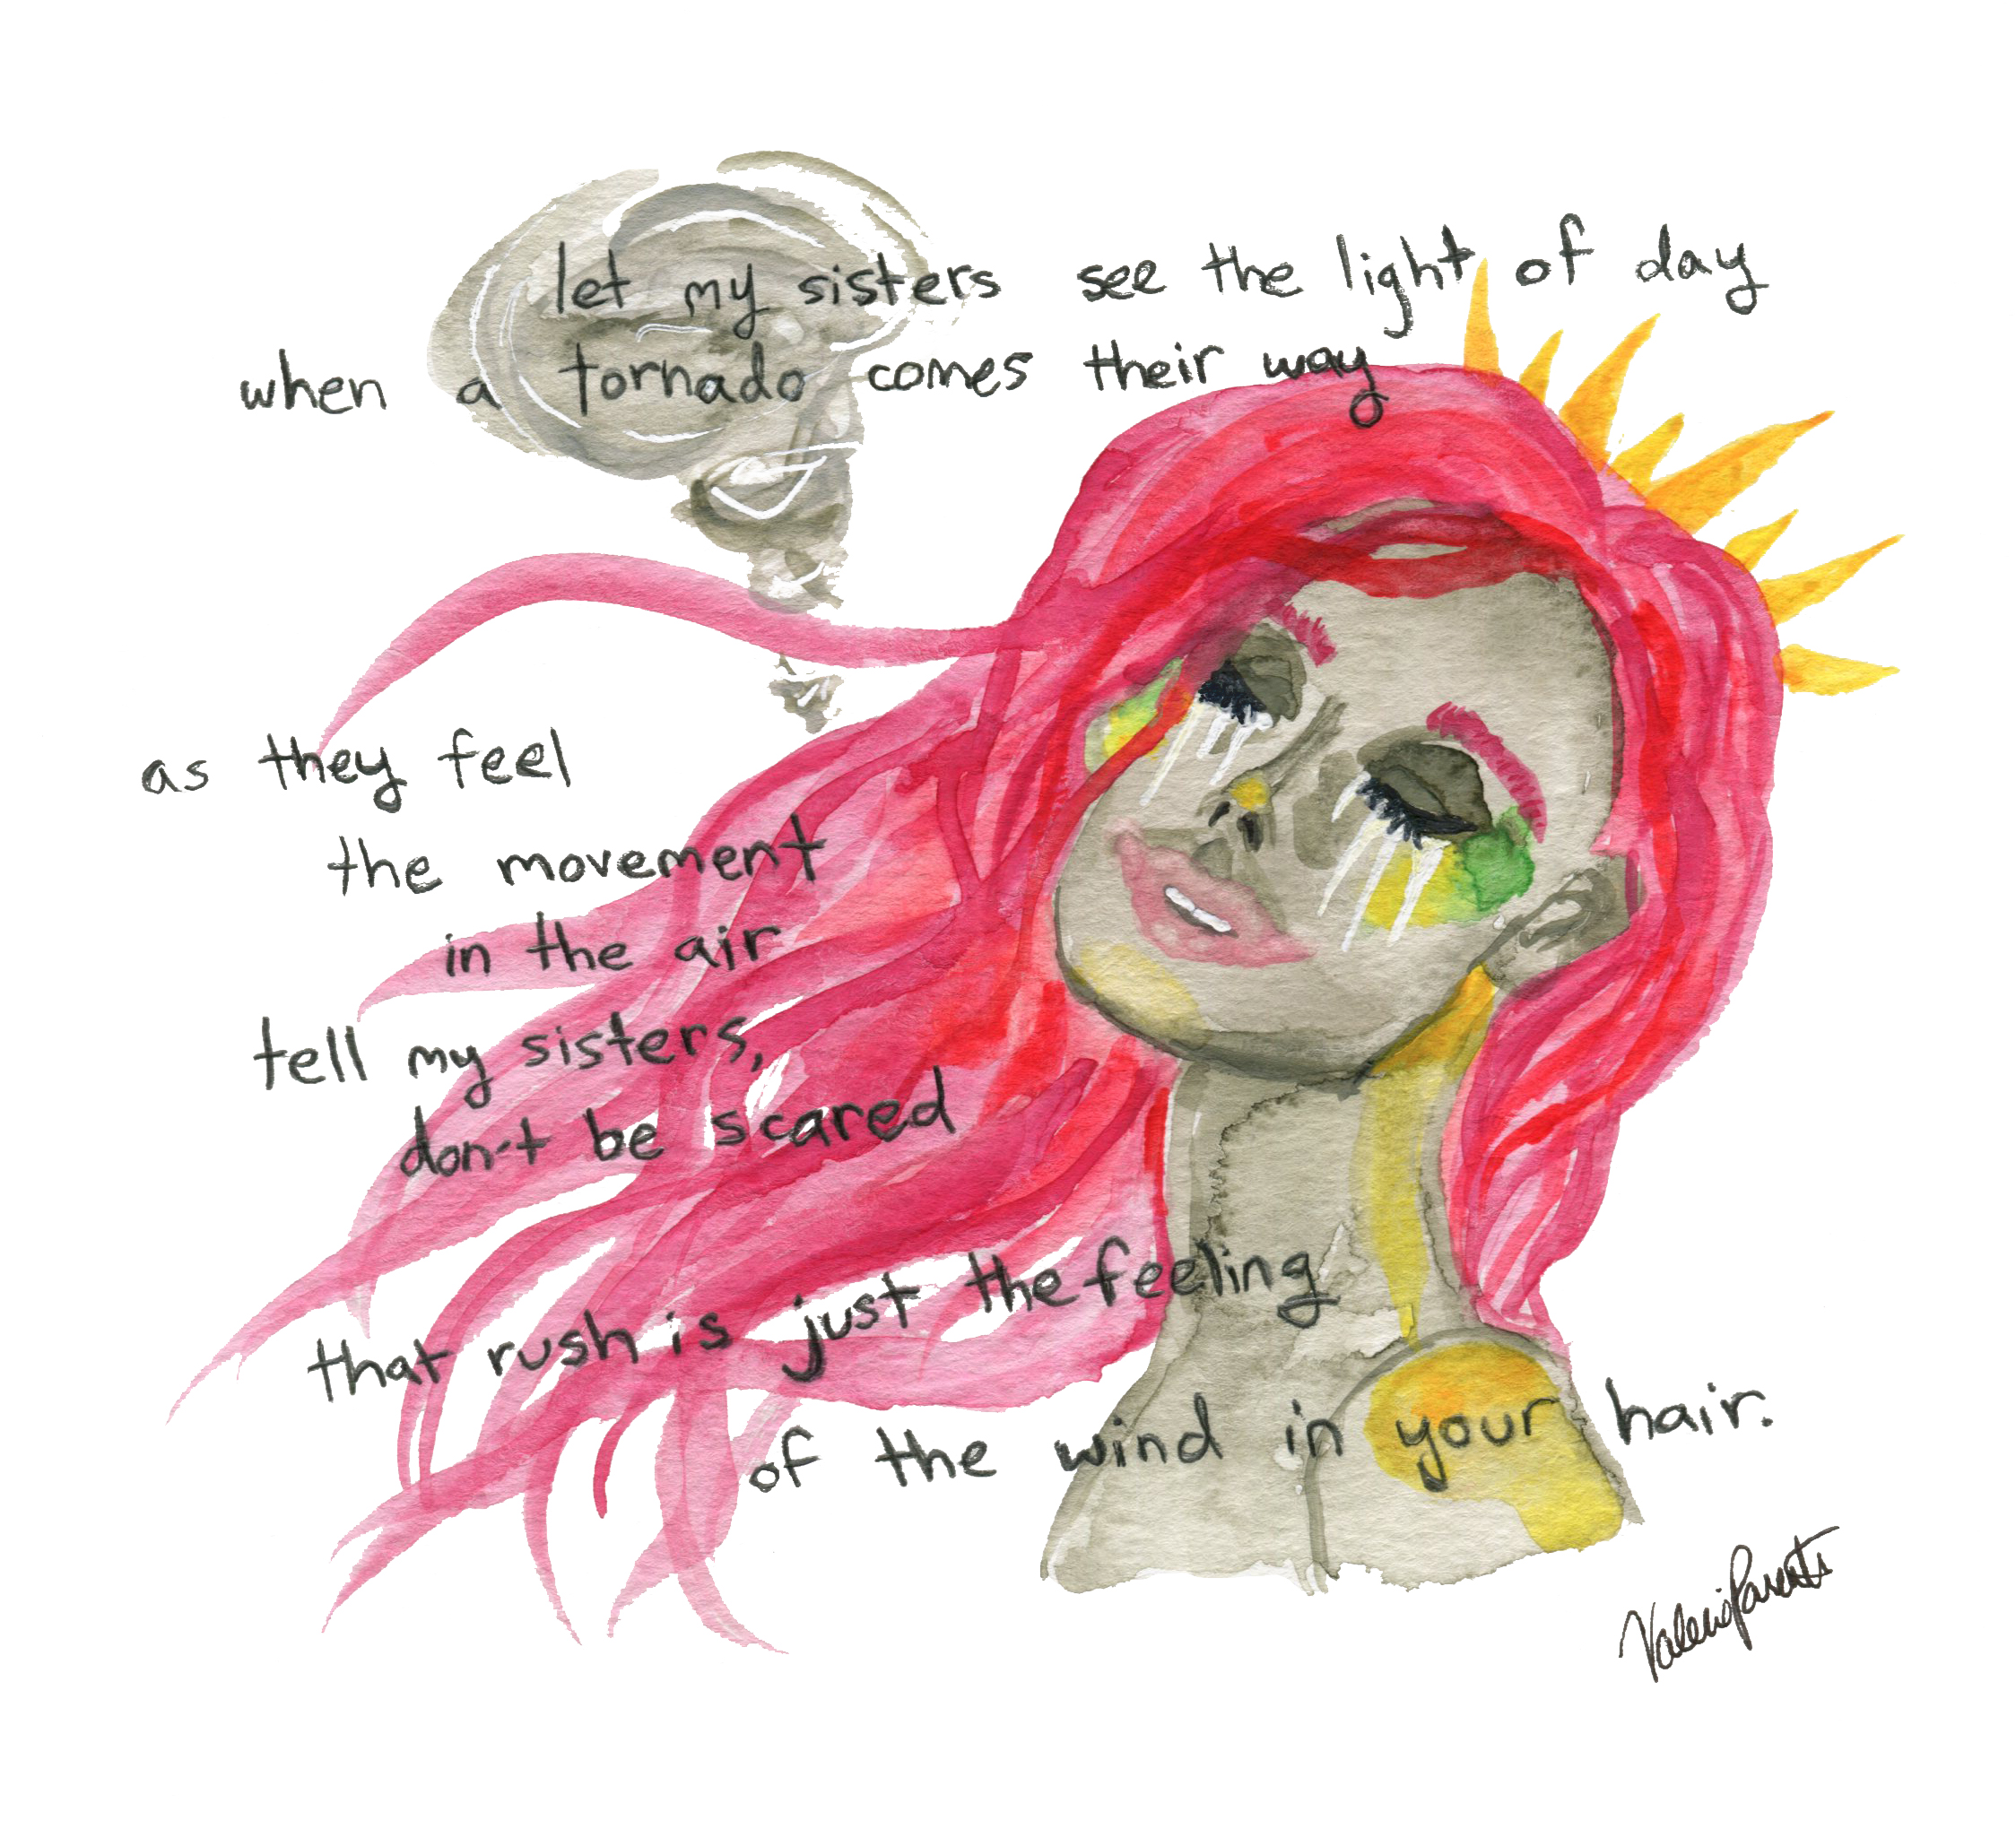 let my sisters see the light of day
when a tornado comes their way
as they feel
the movement
in the air
tell my sisters,
don't be scared
that rush is just the feeling
of the wind in your hair.